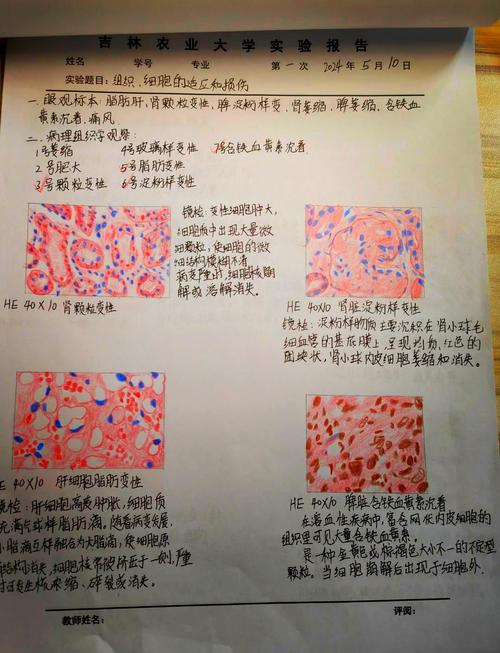 吉林农业大学实验报告
姓名 学号 专业 第一次 2024年5月10日
实验题目：组织、细胞的适应和损伤
一、眼观标本：脂肪肝，肾颗粒变性，脾淀粉样变，肾萎缩，脾萎缩，含铁血
黄素沉着，痛风
二、病理组织学观察：
1号萎缩 4号玻璃样变性 7号含铁血黄素沉着
2号肥大 5号脂肪变性
3号颗粒变性 6号淀粉样变性
镜检：变性细胞肿大，
细胞质中出现大量微
细颗粒，使细胞的微
细结构模糊不清
病变严重时，细胞核崩
解或溶解消失。
HE 40×10 肾颗粒变性
HE 40×10 肾脏淀粉样变性
镜检：淀粉样物质主要沉积在肾小球毛
细血管的基底膜上，呈现均匀、红色的
团块状，肾小球内皮细胞萎缩和消失。
HE 40×10 肝细胞脂肪变性
镜检：肝细胞高度肿胀，细胞质
充满点球样脂肪滴。随着病变发展，
小脂滴互样融合为大脂滴，使细胞原
结构消失，细胞核常被挤压于一侧，严重
时发生核浓缩、碎裂或消失。
HE 40×10 脾脏含铁血黄素沉着
在溶血性疾病中，富含网状内皮细胞的
组织里可见大量含铁血黄素。
是一种金黄色或棕褐色大小不一的不定型
颗粒。当细胞崩解后出现于细胞外
教师姓名： 评阅：